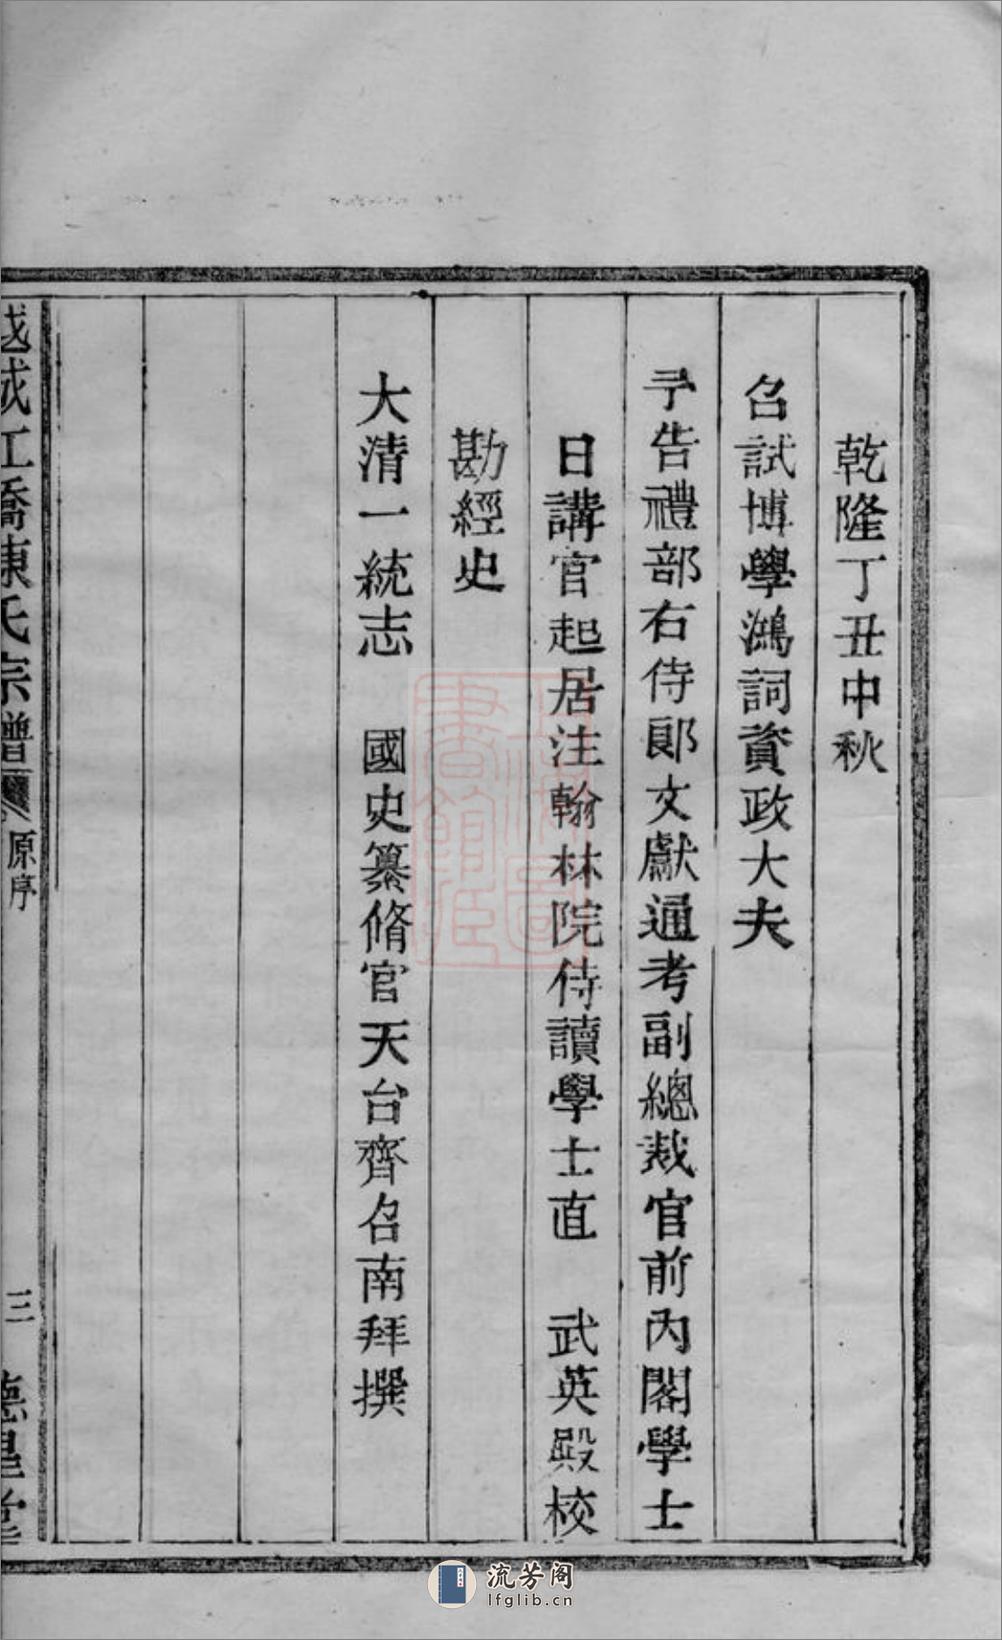 乾隆丁丑中秋
召試博學鴻詞資政大夫
予告禮部右侍郎文獻通考副總裁官前內閣學士
日講官起居注翰林院侍讀學士直　武英殿校
勘經史
大清一統志　國史纂脩官天台齊召南拜撰
越城江橋陳氏宗譜
原序
三
德星堂
流芳阁
lfglib.cn